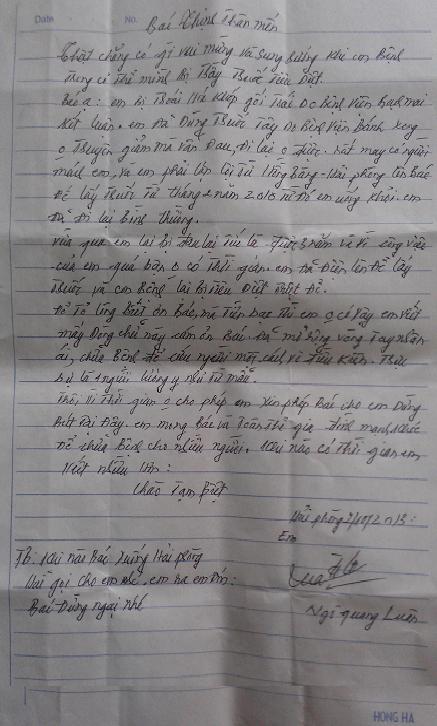 Date No.
Bác Thịnh Thân mến
Thật chẳng có gì vui mừng và sung sướng khi con Bệnh
trong cơ thể mình Bị Thầy Thuốc Tiêu Diệt.
Bác ạ: em Bị Thoái Hoá Khớp gối Trái Do Bệnh Viện Bạch mai
Kết Luận. em Đã Dùng Thuốc Tây Do Bệnh Viện Bánh xong
o Thuyên giảm mà vẫn Đau, Đi lại o được. Rất may có người
mách em, và em phải lên tại từ Hồng Bàng - Hải phòng lên Bác
Để lấy Thuốc Từ tháng 2 năm 2010 em uống khỏi. em
Đã Đi lại Bình Thường.
vừa qua em lại Bị đau lại Tức là được 3 năm vì vì công việc
của em quá bận o có Thời gian. em Đã Điện lên Để lấy
Thuốc và con Bệnh lại Bị Tiêu Diệt Triệt Để.
Để Tỏ lòng Biết ơn Bác, mà Tiền bạc Thì em o có vậy em viết
mấy Dòng chữ này cảm ơn Bác Đã mở rộng vòng Tay nhân
ái, chữa Bệnh để cứu người một cách vô Điều kiện. Thực
Sự là người lương y như Từ mẫu.
Thôi, Vì Thời gian o cho phép em xin phép Bác cho em Dừng
Bút Tại Đây. em mong Bác và Toàn Thể gia Đình mạnh khoẻ
Để chữa Bệnh cho nhiều người. Khi nào có Thời gian em
Viết nhiều hơn:
Chào Tạm Biệt
Hải phòng 2013:
Em
TB: Khi nào Bác xuống Hải phòng
gọi cho em nhé. em ra em Đón:
Bác Đừng ngại nhé
Ngô Quang Luân
HONG HA